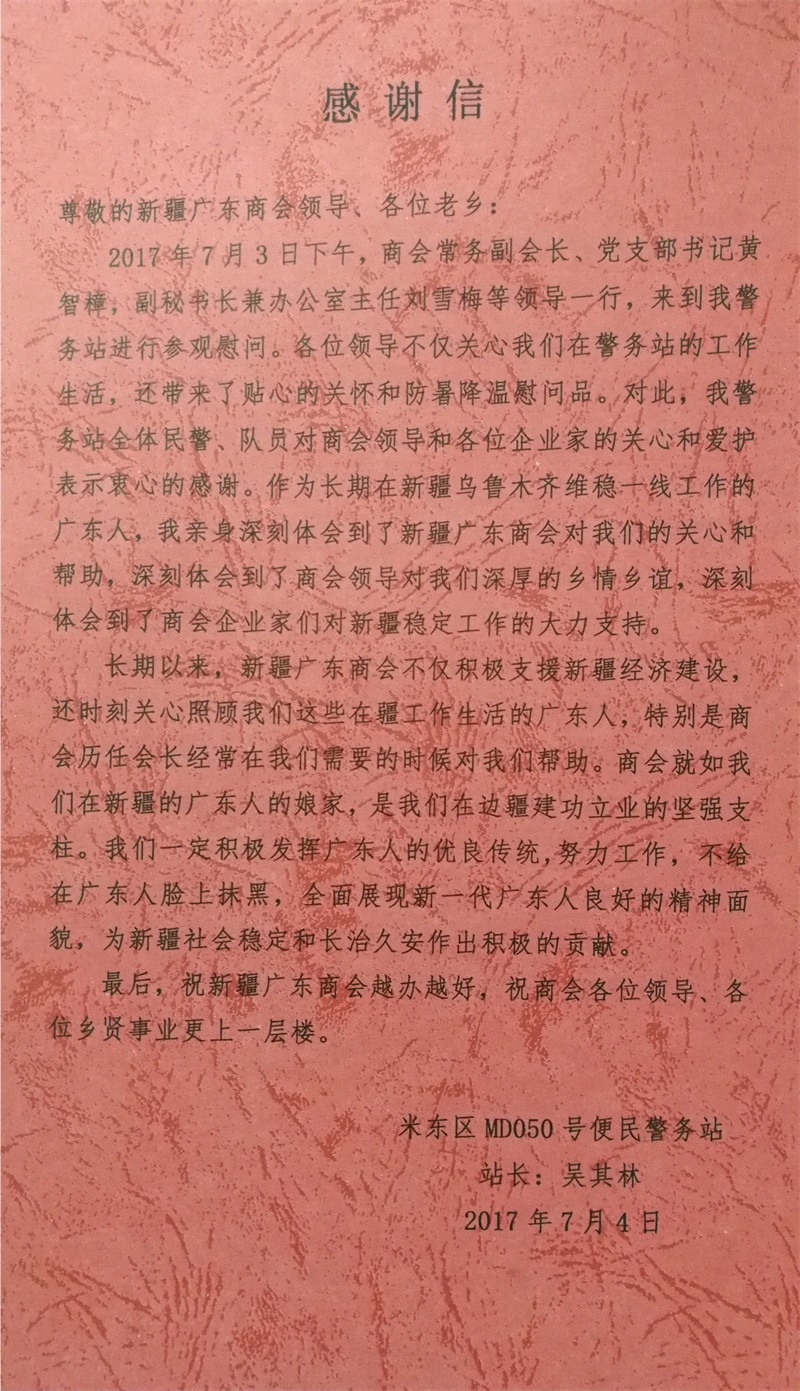 感谢信
尊敬的新疆广东商会领导、各位老乡：
2017年7月3日下午，商会常务副会长、党支部书记黄
智樟，副秘书长兼办公室主任刘雪梅等领导一行，来到我警
务站进行参观慰问。各位领导不仅关心我们在警务站的工作
生活，还带来了贴心的关怀和防暑降温慰问品。对此，我警
务站全体民警、队员对商会领导和各位企业家的关心和爱护
表示衷心的感谢。作为长期在新疆乌鲁木齐维稳一线工作的
广东人，我亲身深刻体会到了新疆广东商会对我们的关心和
帮助，深刻体会到了商会领导对我们深厚的乡情乡谊，深刻
体会到了商会企业家们对新疆稳定工作的大力支持。
长期以来，新疆广东商会不仅积极支援新疆经济建设，
还时刻关心照顾我们这些在疆工作生活的广东人，特别是商
会历任会长经常在我们需要的时候对我们帮助。商会就如我
们在新疆的广东人的娘家，是我们在边疆建功立业的坚强支
柱。我们一定积极发挥广东人的优良传统,努力工作，不给
在广东人脸上抹黑，全面展现新一代广东人良好的精神面
貌，为新疆社会稳定和长治久安作出积极的贡献。
最后，祝新疆广东商会越办越好，祝商会各位领导、各
位乡贤事业更上一层楼。
米东区MD050号便民警务站
站长：吴其林
2017年7月4日